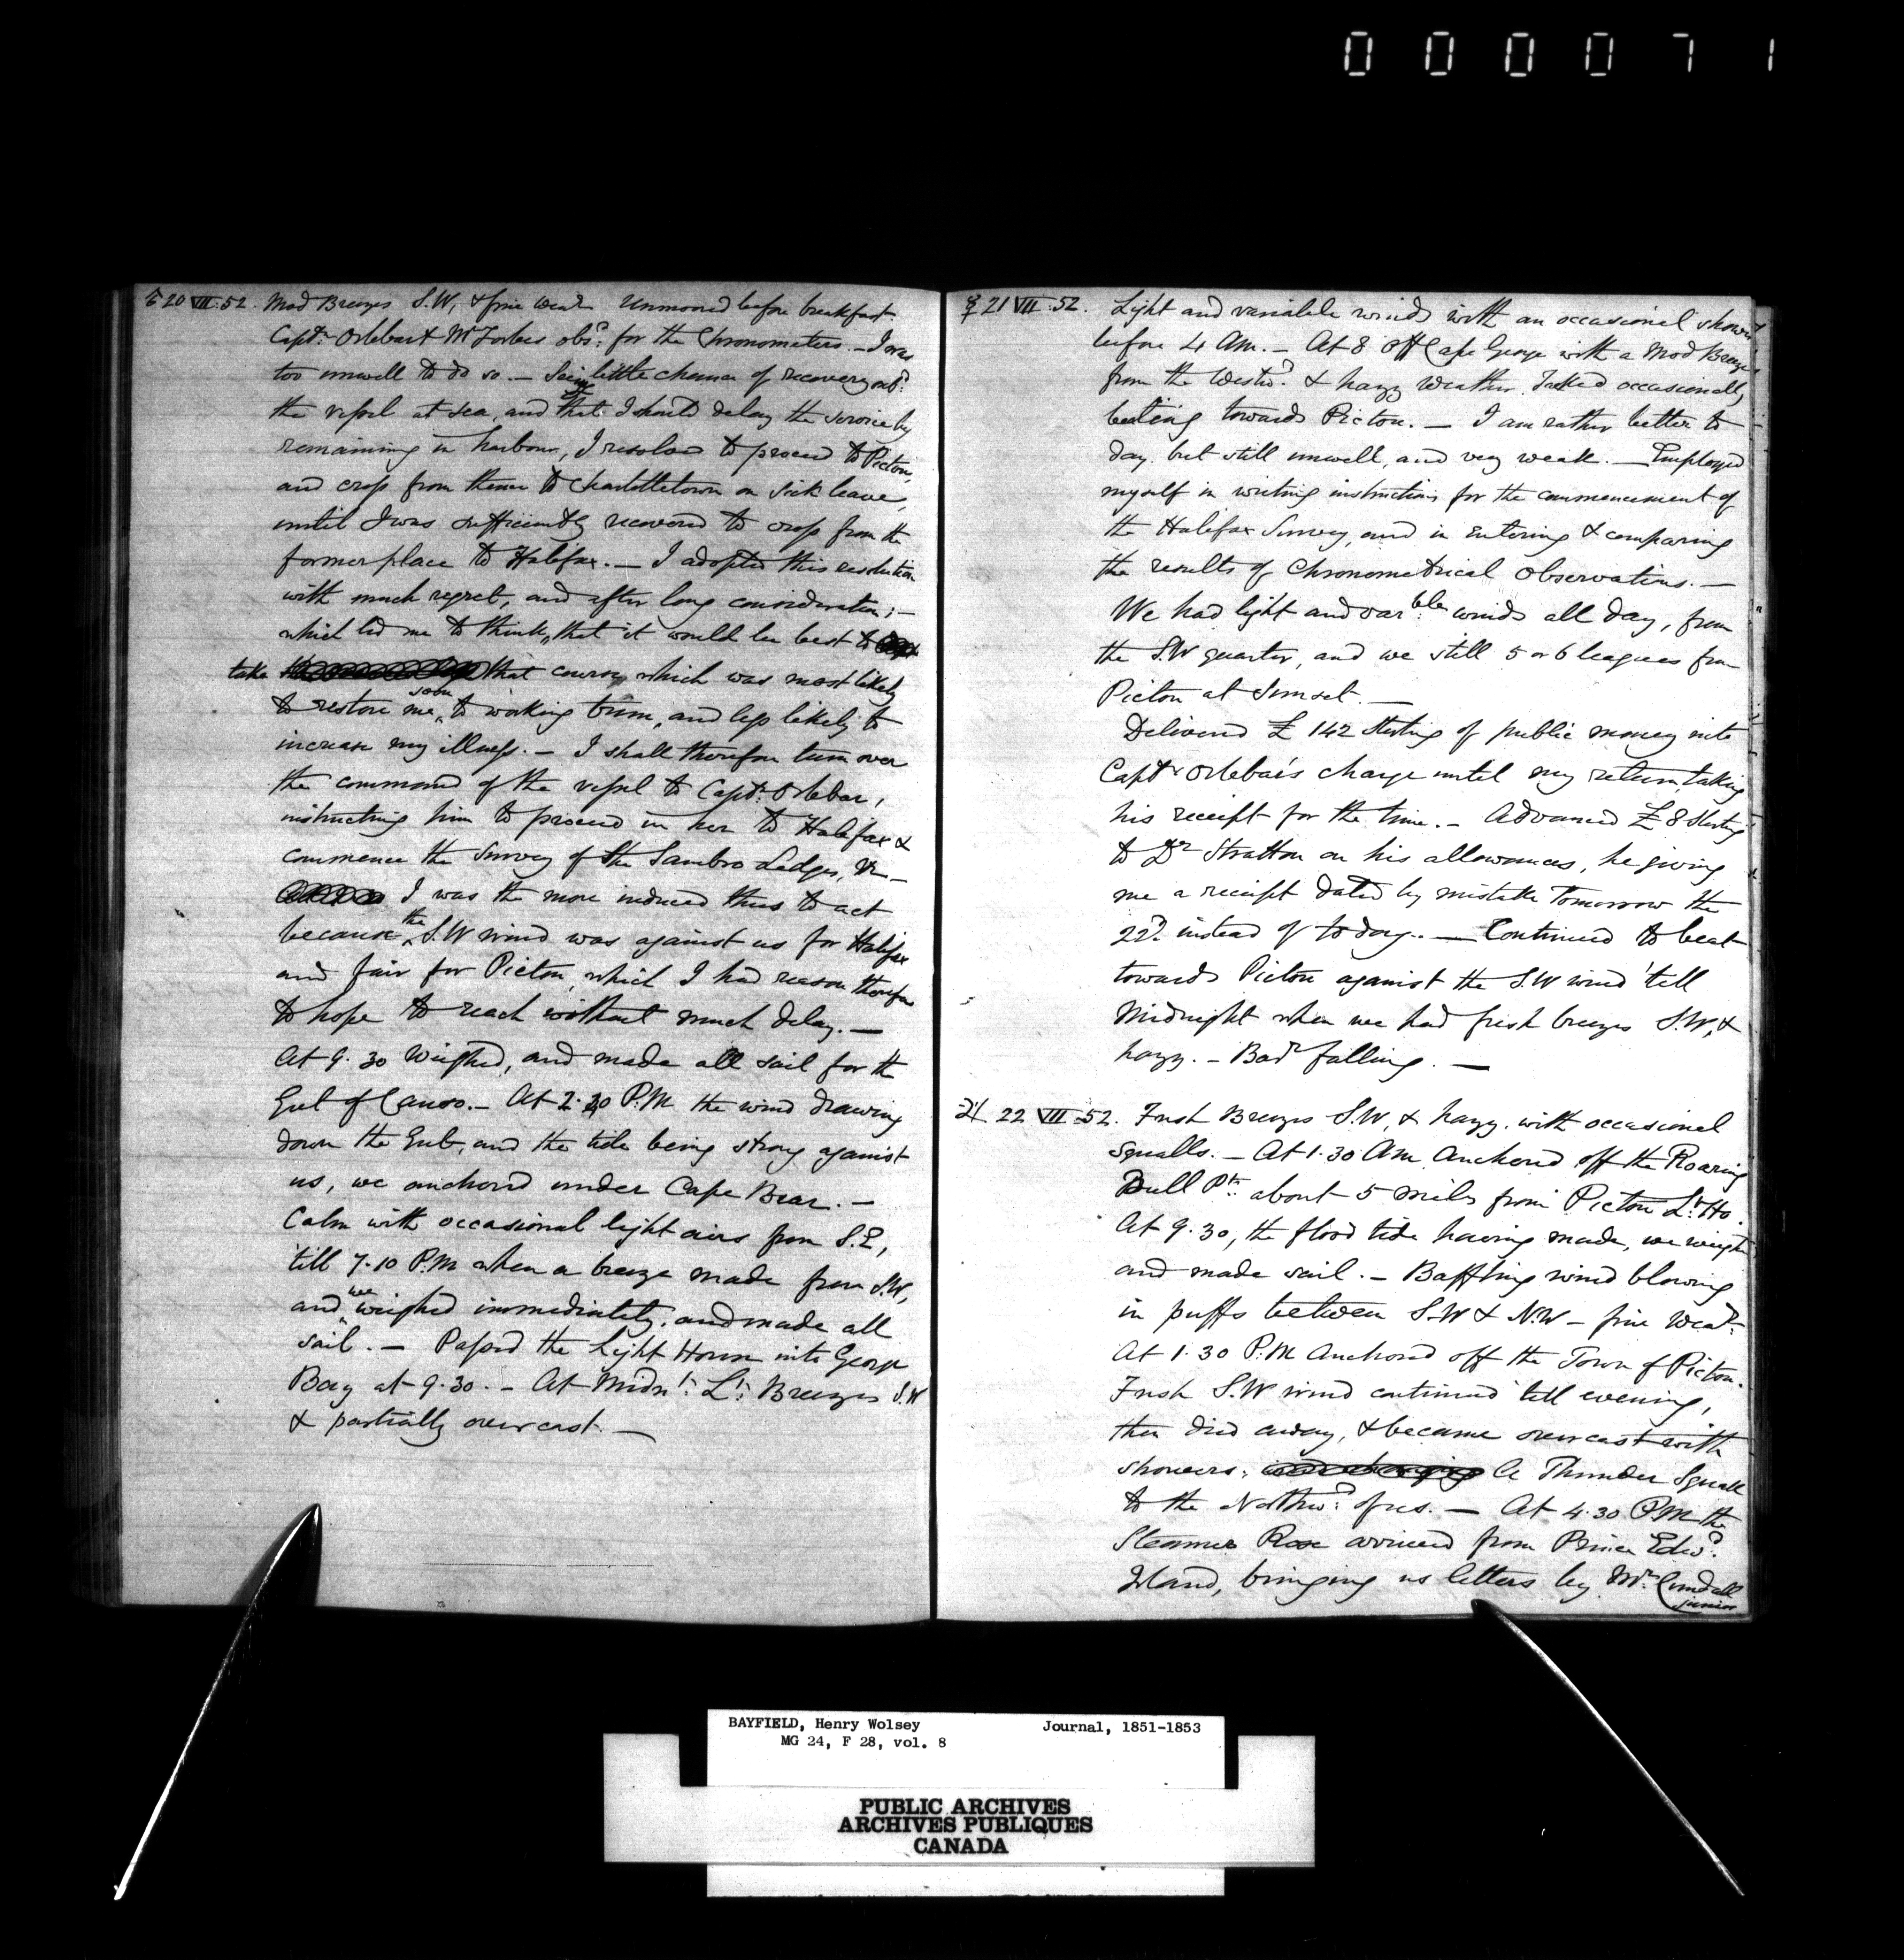 0 0 0 0 7 1
♂ 20 VII .52. Mod Breezes S.W, & fine Weatr Unmoored before breakfast.
Captn. Orlebar & Mr Forbes obsd. for the Chronometers. - I was
too unwell to do so. - Seeing little chance of recovery onbd.
the vessel at sea, and that I should delay the service by
remaining in harbour, I resolved to proceed to Pictou,
and cross from thence to Charlottetown on sick leave,
until I was sufficiently recovered to cross from the
former place to Halifax. - I adopted this resolution
with much regret, and after long consideration; -
which led me to think, that it would be best to
take that course, which was most likely
to restore me soon to working trim, and less likely to
increase my illness. - I shall therefore turn over
the command of the vessel to Captn. Orlebar,
instructing him to proceed in her to Halifax &
commence the Survey of the Sambro Ledges, &c -
I was the more induced thus to act
because the S.W wind was against us for Halifax
and fair for Pictou, which I had reason therefore
to hope to reach without much delay. -
At 9.30 Weighed, and made all sail for the
Gut of Canso. - At 2. P.M the wind drawing
down the Gut, and the tide being strong against
us, we anchored under Cape Bear. -
Calm with occasional light airs from S.E,
'till 7.10 P.M when a breeze made from S.W,
and we weighed immediately, and made all
sail. - Passed the Light House into George
Bay at 9.30. - At Midnt. Lt. Breezes S.W
& partially overcast. -
☿ 21 VII .52. Light and variable winds with an occasional shower
before 4 AM. - At 8 off Cape George with a Mod Breeze
from the Westwd. & hazy weather. Tacked occasionally
beating towards Pictou. - I am rather better to
day, but still unwell, and very weak. - Employed
myself in writing instructions for the commencement of
the Halifax Survey, and in Entering & comparing
the results of Chronometrical Observations. -
We had light and varble. winds all day, from
the S.W quarter, and we still 5 or 6 leagues from
Pictou at Sunset. -
Delivered £ 142 Sterling of public money into
Captn Orlebar's charge until my return, taking
his receipt for the time. - Advanced £ 8 Sterling
to Dr Stratton on his allowances, he giving
me a receipt dated by mistake Tomorrow the
22d. instead of to day. - Continued to beat
towards Pictou against the S.W wind 'till
Midnight when we had fresh breezes S.W, &
hazy. - Barr falling. -
♃ 22 VII .52. Fresh Breezes S.W, & hazy, with occasional
Squalls. - At 1.30 AM Anchored off the Roaring
Bull Pt. about 5 miles from Pictou Lt. Ho.
At 9.30, the flood tide having made, we weighed
and made sail. - Baffling wind blowing
in puffs between S.W & N.W - fine Weatr.
At 1.30 P.M Anchored off the Town of Pictou.
Fresh S.W wind continued till evening,
then died away, & became overcast with
showers; A Thunder Squall
to the Northwd. of us. - At 4.30 P.M the
Steamer Rose arrived from Prince Edwd.
Island, bringing us letters by Mr. Cundall
junior
BAYFIELD, Henry Wolsey Journal, 1851-1853
MG 24, F 28, vol. 8
PUBLIC ARCHIVES
ARCHIVES PUBLIQUES
CANADA